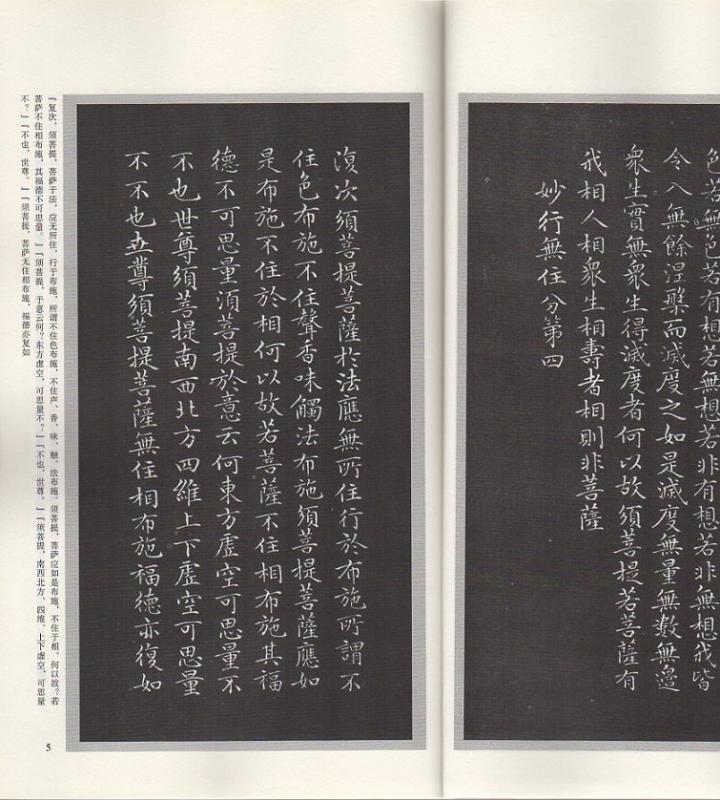 色若無色若有想若無想若非有想若非無想我皆
令入無餘涅槃而滅度之如是滅度無量無數無邊
衆生實無衆生得滅度者何以故須菩提若菩薩有
我相人相衆生相壽者相則非菩薩
妙行無住分第四
復次須菩提菩薩於法應無所住行於布施所謂不
住色布施不住聲香味觸法布施須菩提菩薩應如
是布施不住於相何以故若菩薩不住相布施其福
德不可思量須菩提於意云何東方虛空可思量不
不也世尊須菩提南西北方四維上下虛空可思量
不不也世尊須菩提菩薩無住相布施福德亦復如
「复次，须菩提，菩萨于法，应无所住，行于布施，所谓不住色布施，不住声、香、味、触、法布施。须菩提，菩萨应如是布施，不住于相。何以故？若
菩萨不住相布施，其福德不可思量。」「须菩提，于意云何？东方虚空，可思量不？」「不也，世尊。」「须菩提，南西北方、四维、上下虚空，可思量
不？」「不也，世尊。」「须菩提，菩萨无住相布施，福德亦复如
5